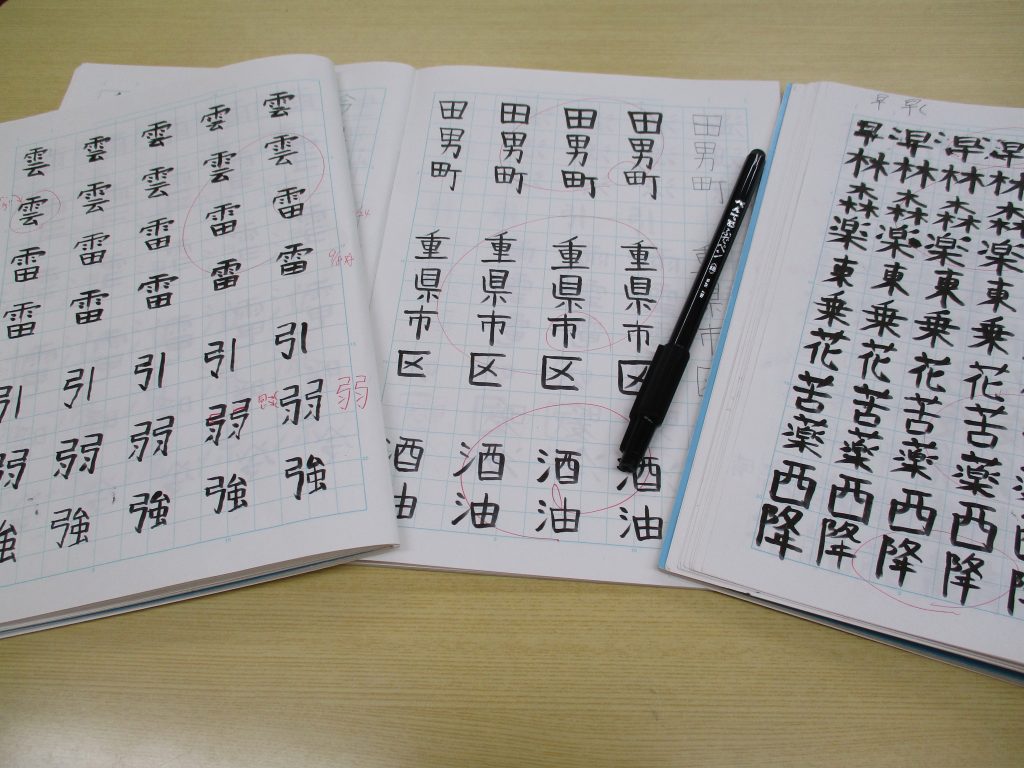 雲雲雷雷引弱強
雲雲雷雷引弱強
雲雲雷雷引弱強
雲雲雷雷引弱強
雲雲雷雷引弱強
弱
田男町
田男町重県市区酒油
田男町重県市区酒油
田男町重県市区酒油
田男町重県市区酒油
ぺんてる筆ペン
早林森楽東乗花苦薬西降
早林森楽東乗花苦薬西降
早林森楽東乗花苦薬西降
早林森楽東乗花苦薬西降